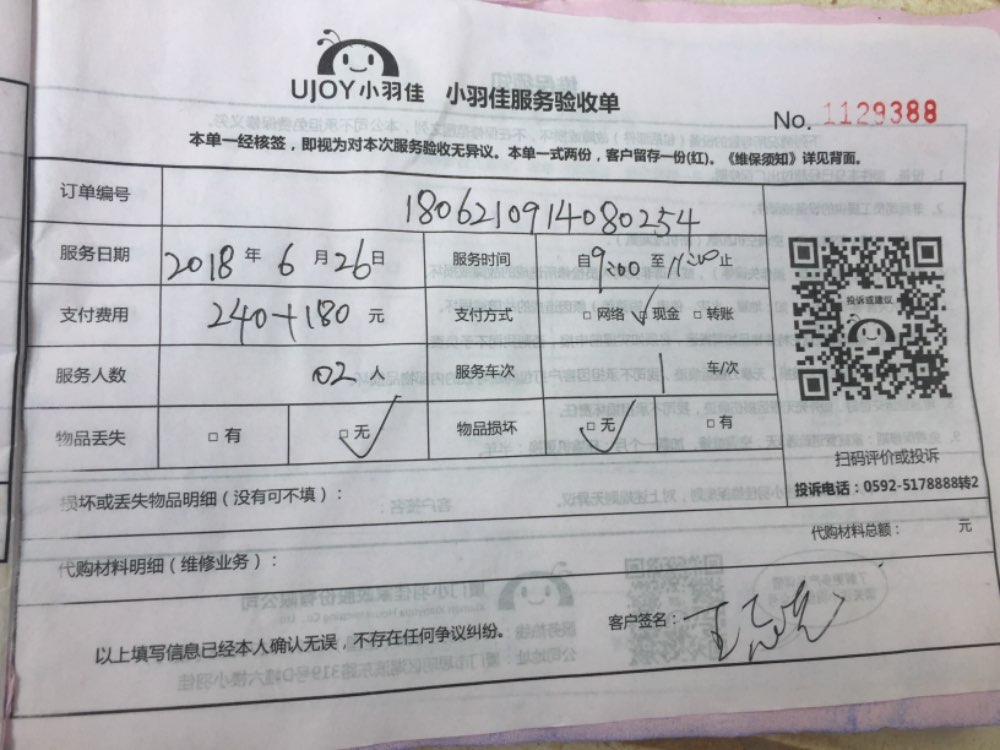 UJOY小羽佳 小羽佳服务验收单
No. 1129388
本单一经核签，即视为对本次服务验收无异议。本单一式两份，客户留存一份(红)。《维保须知》详见背面。
订单编号 1806210914080254
服务日期 2018年6月26日 服务时间 自9:00至11:00止
支付费用 240+180元 支付方式 □网络 ☑现金 □转账
服务人数 02人 服务车次 1 车/次
物品丢失 □有 ☑无 物品损坏 ☑无 □有
投诉或建议
扫码评价或投诉
投诉电话：0592-5178888转2
损坏或丢失物品明细（没有可不填）：
代购材料总额： 元
代购材料明细（维修业务）：
以上填写信息已经本人确认无误，不存在任何争议纠纷。
客户签名：王